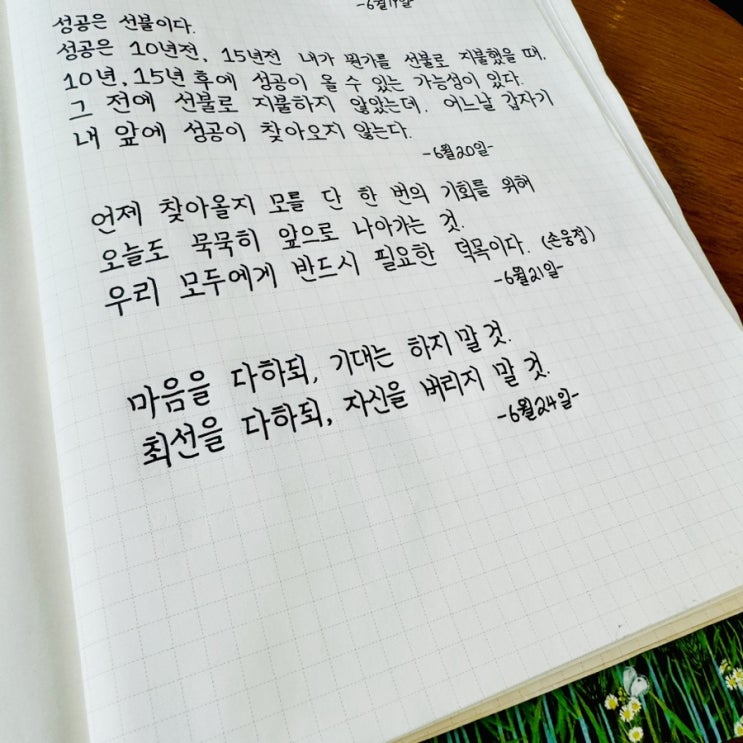 -6월19일-
성공은 선불이다.
성공은 10년전, 15년전 내가 뭔가를 선불로 지불했을 때,
10년, 15년 후에 성공이 올 수 있는 가능성이 있다.
그 전에 선불로 지불하지 않았는데. 어느날 갑자기
내 앞에 성공이 찾아오지 않는다.
-6월20일-
언제 찾아올지 모를 단 한 번의 기회를 위해
오늘도 묵묵히 앞으로 나아가는 것.
우리 모두에게 반드시 필요한 덕목이다. (손웅정)
-6월21일-
마음을 다하되, 기대는 하지 말 것.
최선을 다하되, 자신을 버리지 말 것.
-6월24일-